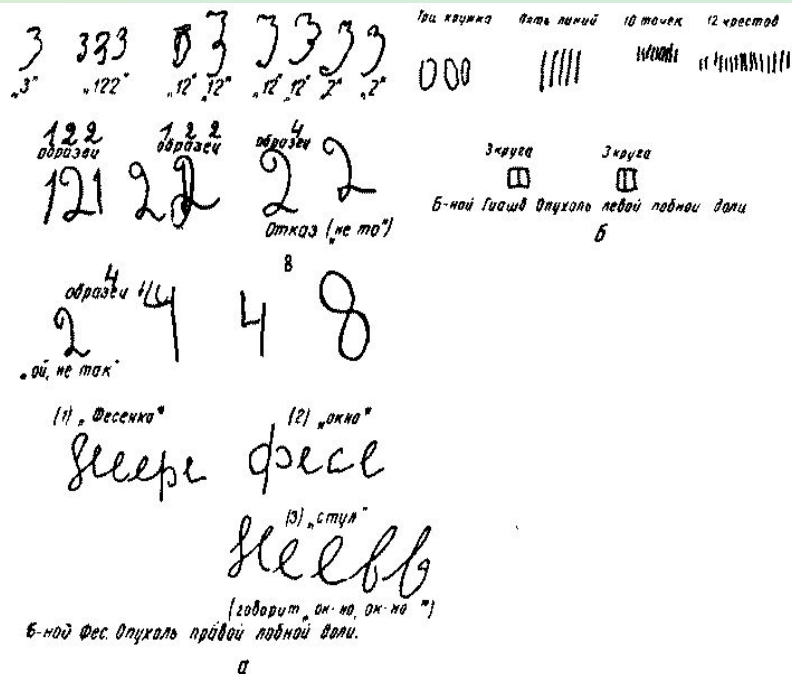 3 333 3 3 3 3 3
„3" „122" „12" „12" „12" „12" „2" „2"
Три кружка Пять линий 10 точек 12 крестов
122 122 4
образец образец образец
121 2 2 2 2
Отказ („не то")
3 круга 3 круга
Б-ной Гиашв Опухоль левой лобной доли
Б
4 8
образец
2 4 4 8
„ой, не так"
(1) „Фесенко" (2) „окно"
фесе
(3) „стул"
(говорит „ок-но, ок-но")
Б-ной Фес. Опухоль правой лобной доли.
а